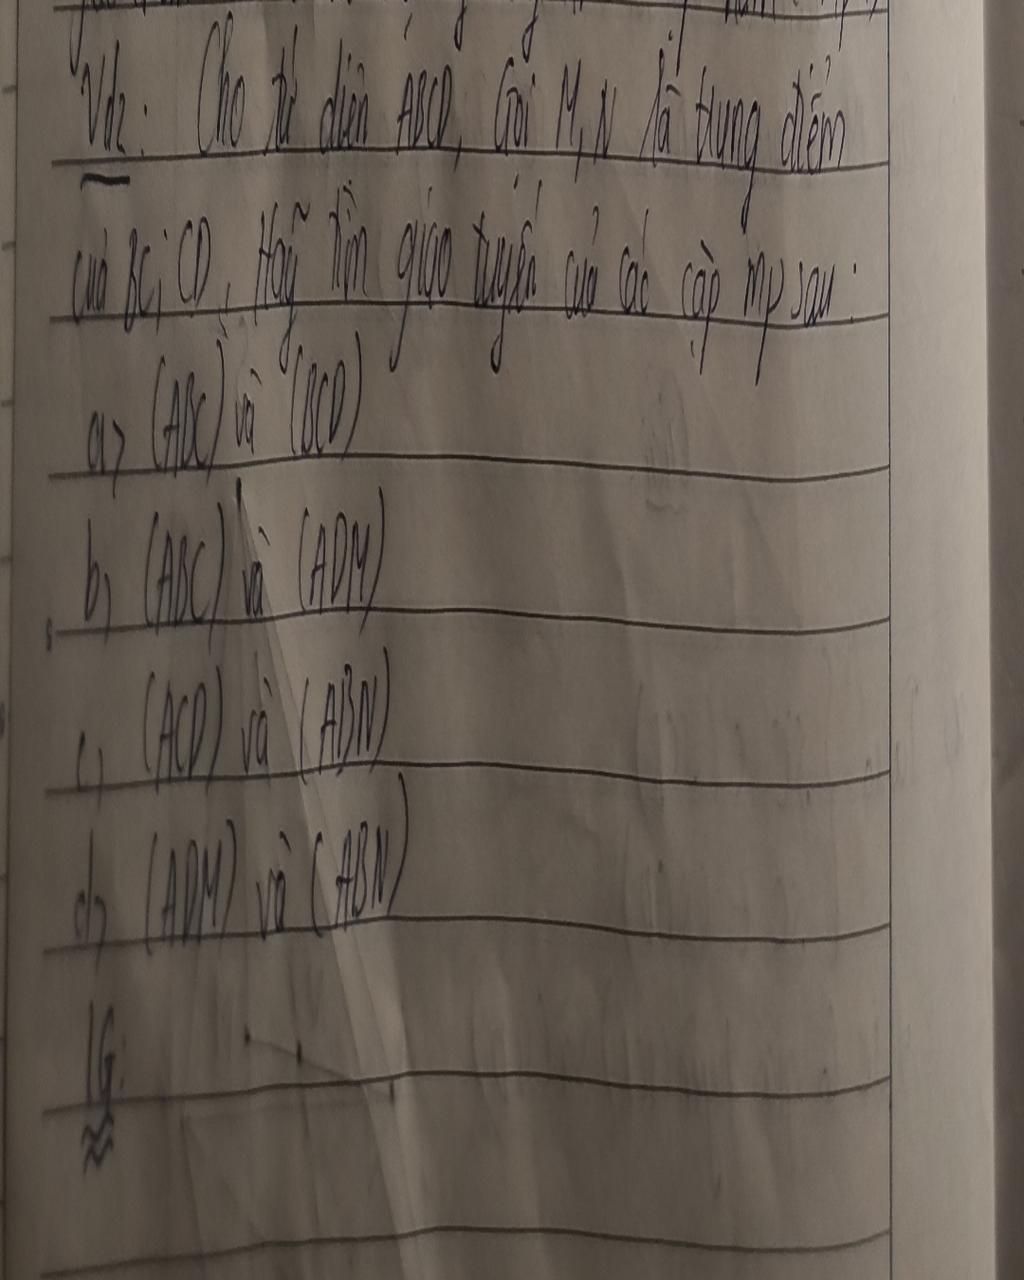 Vd2: Cho tứ diện ABCD, Gọi M, N là trung điểm
của BC; CD. Hãy tìm giao tuyến của các cặp mp sau:
a, (ABC) và (BCD)
b, (ABC) và (ADM)
c, (ACD) và (ABN)
d, (ADM) và (ABN)